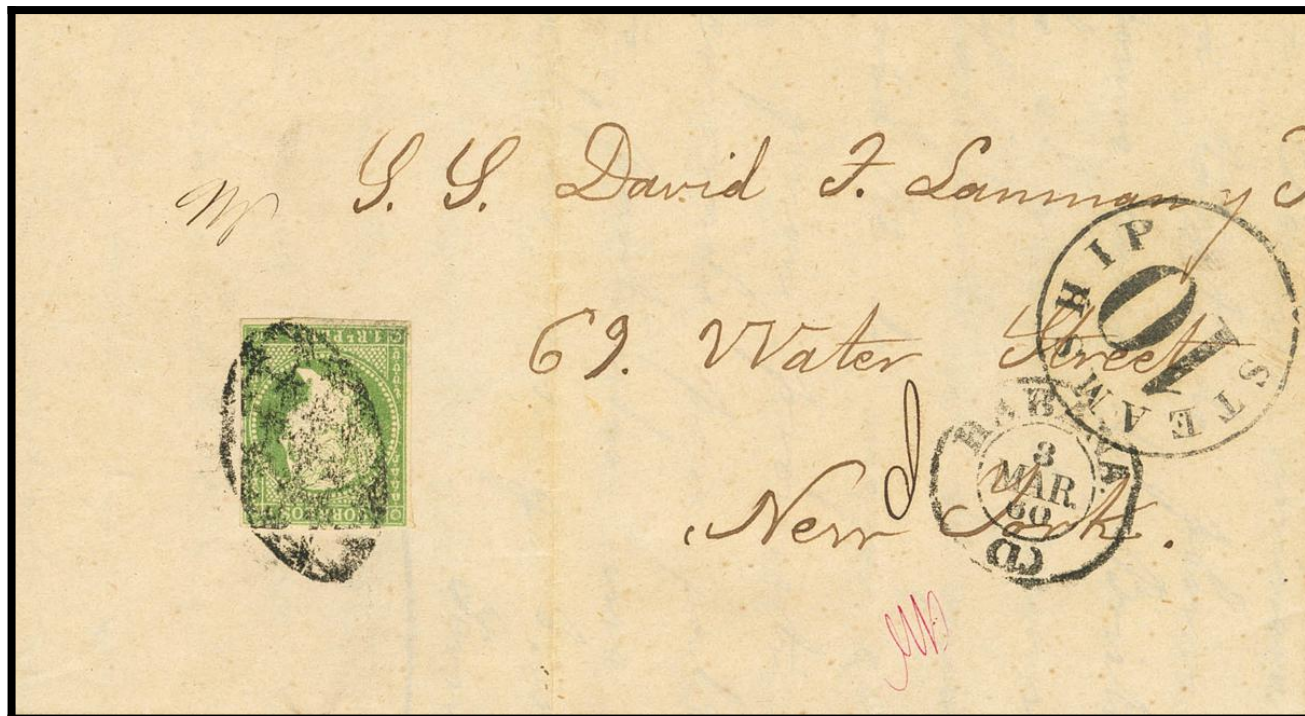 S. S. David F. Lanman y
69. Water Street
New York.
STEAMSHIP
10
HABANA
3
MAR.
60
CORREOS